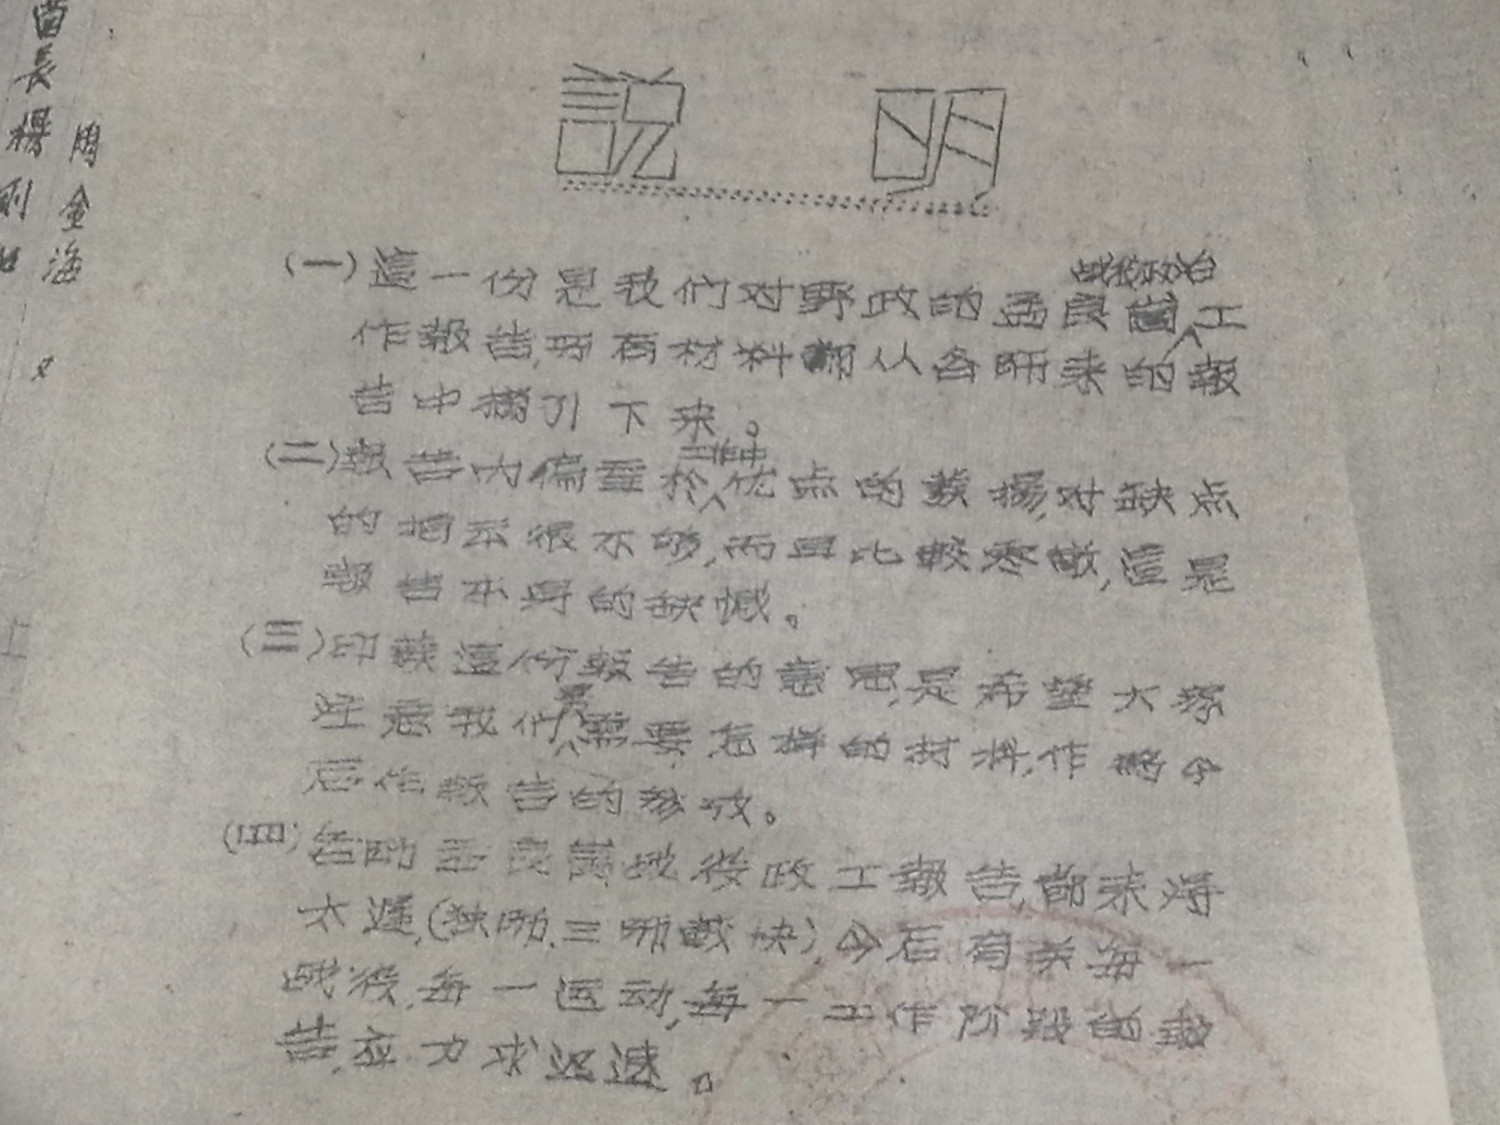 說明
(一)這一份是我们对野政的孟良崮战役政治工
作報告,所有材料都从各师来的報
告中摘引下来。
(二)報告内偏重於工作中优点的蒐揚,对缺点
的揭示很不够,而且比較零散,這是
報告本身的缺憾。
(三)印蒐這份報告的意思,是希望大家
注意我们最需要怎样的材料,作為今
后作報告的参攷。
(四)各师孟良崮战役政工報告,都来得
太遲,(独师、三师較快),今后有关每一
战役,每一运动,每一工作阶段的報
告,应力求迅速。
苗長楊剛
周金海